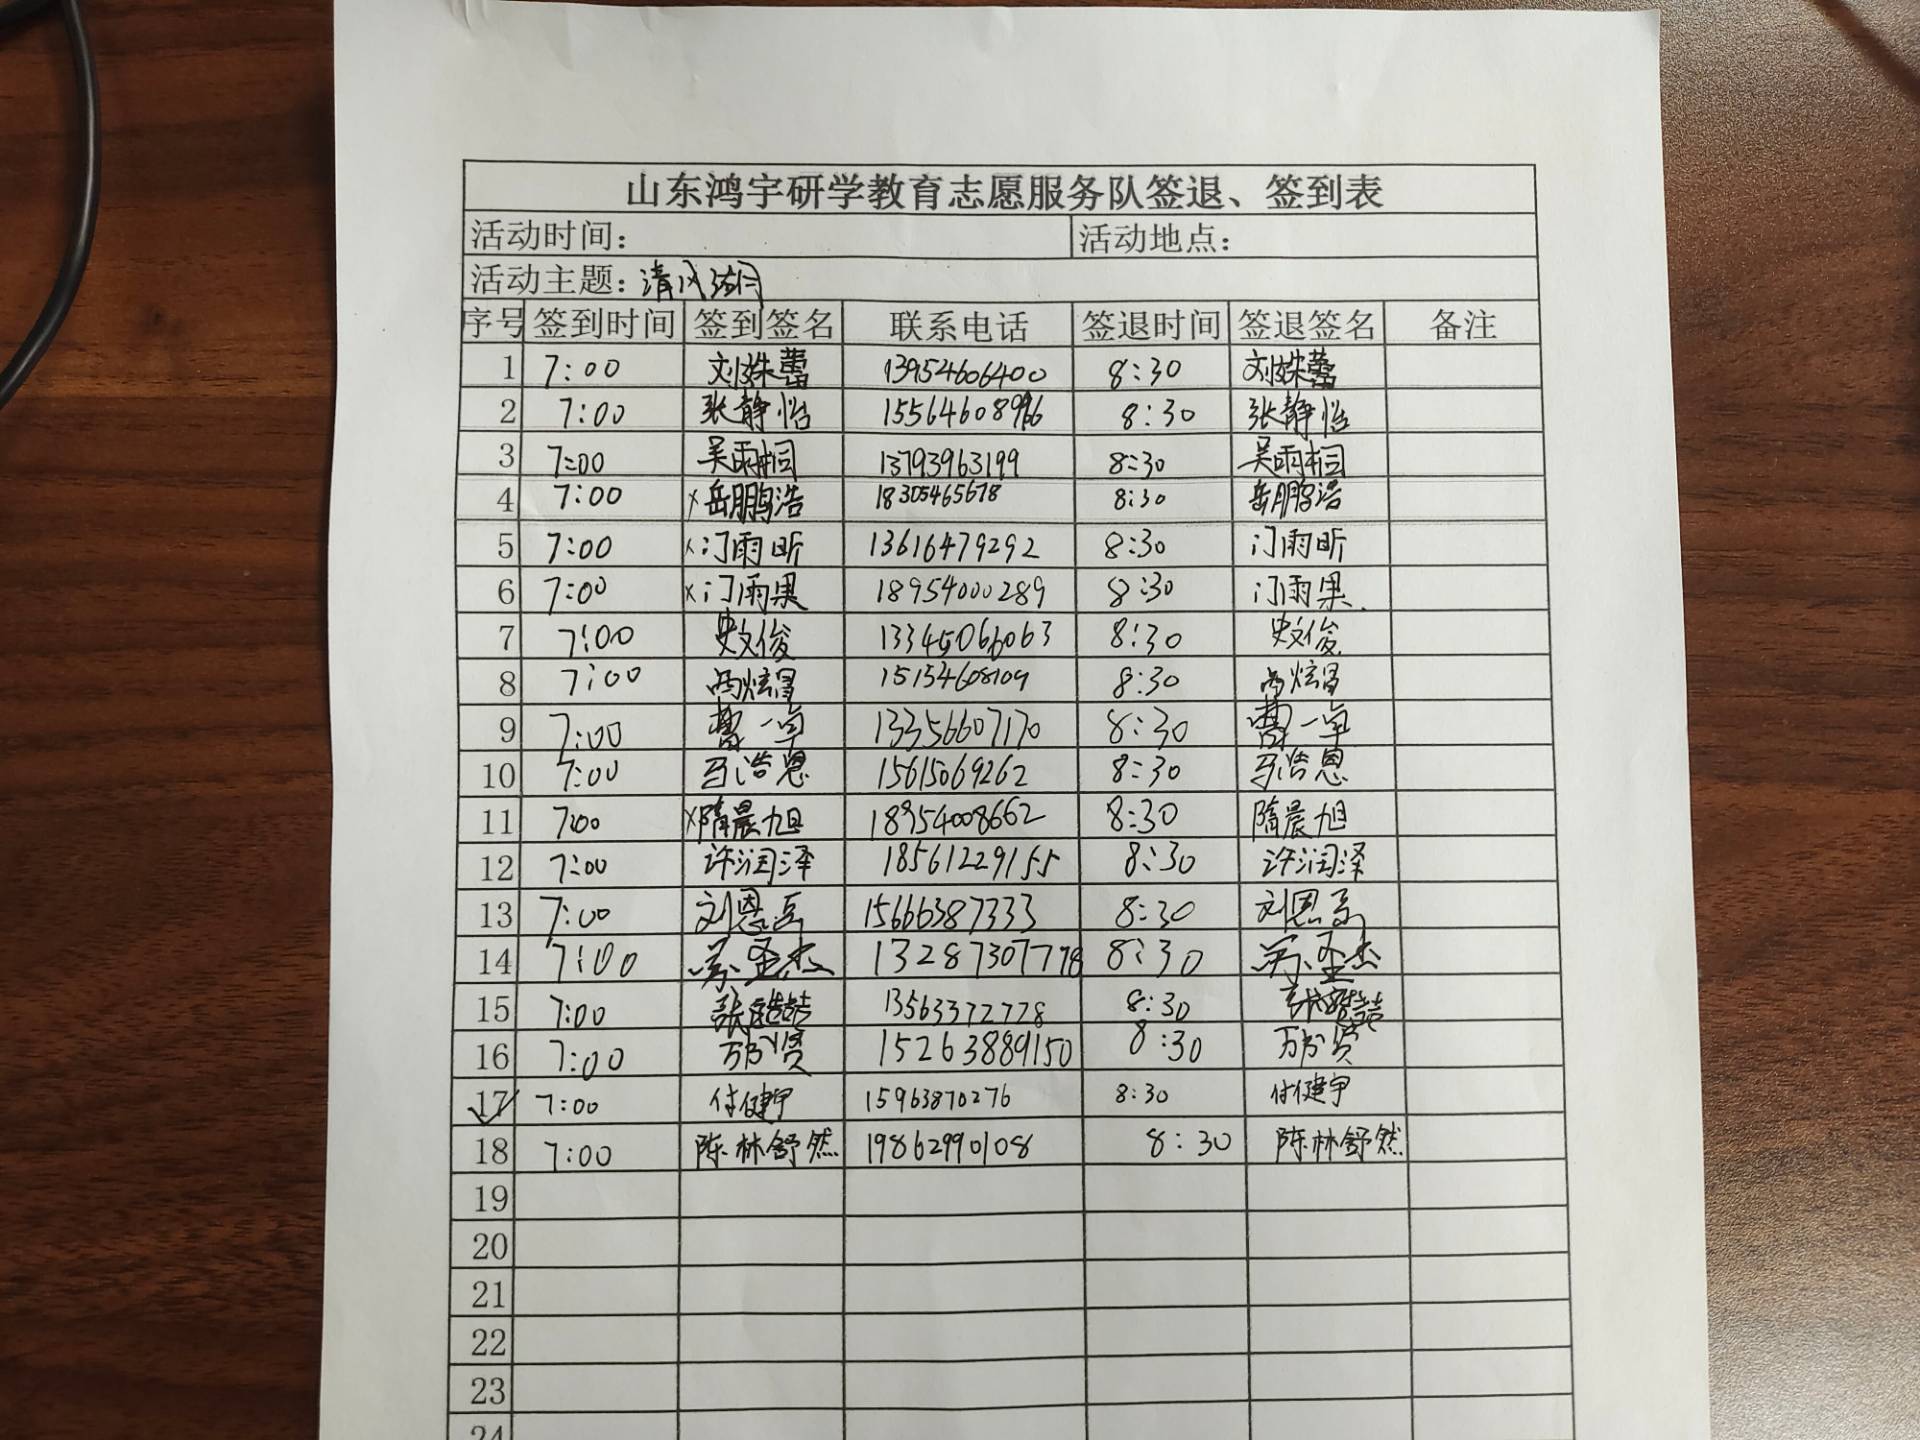 山东鸿宇研学教育志愿服务队签退、签到表
活动时间: 活动地点:
活动主题: 清风
序号 签到时间 签到签名 联系电话 签退时间 签退签名 备注
1 7:00 刘姝蕾 13954606400 8:30 刘姝蕾
2 7:00 张静怡 8:30 张静怡
3 7:00 吴雨桐 13793963199 8:30 吴雨桐
4 7:00 x岳鹏浩 18305465678 8:30 岳鹏浩
5 7:00 x门雨昕 13616479292 8:30 门雨昕
6 7:00 x门雨果 18954000289 8:30 门雨果
7 7:00 史文俊 8:30 史文俊
8 7:00 15154608109 8:30
9 7:00 曹一卓 13356607170 8:30 曹一卓
10 7:00 马浩恩 15615069262 8:30 马浩恩
11 7:00 x隋晨旭 18954008662 8:30 隋晨旭
12 7:00 许润泽 18561229155 8:30 许润泽
13 7:00 刘恩 15666387333 8:30 刘恩
14 7:00 苏圣杰 13287307778 8:30 苏圣杰
15 7:00 张 喆 13563372778 8:30 张 喆
16 7:00 万 贤 15263889150 8:30 万 贤
17 7:00 付健宇 15963870276 8:30 付健宇
18 7:00 陈林舒然 19862990108 8:30 陈林舒然
19
20
21
22
23
24